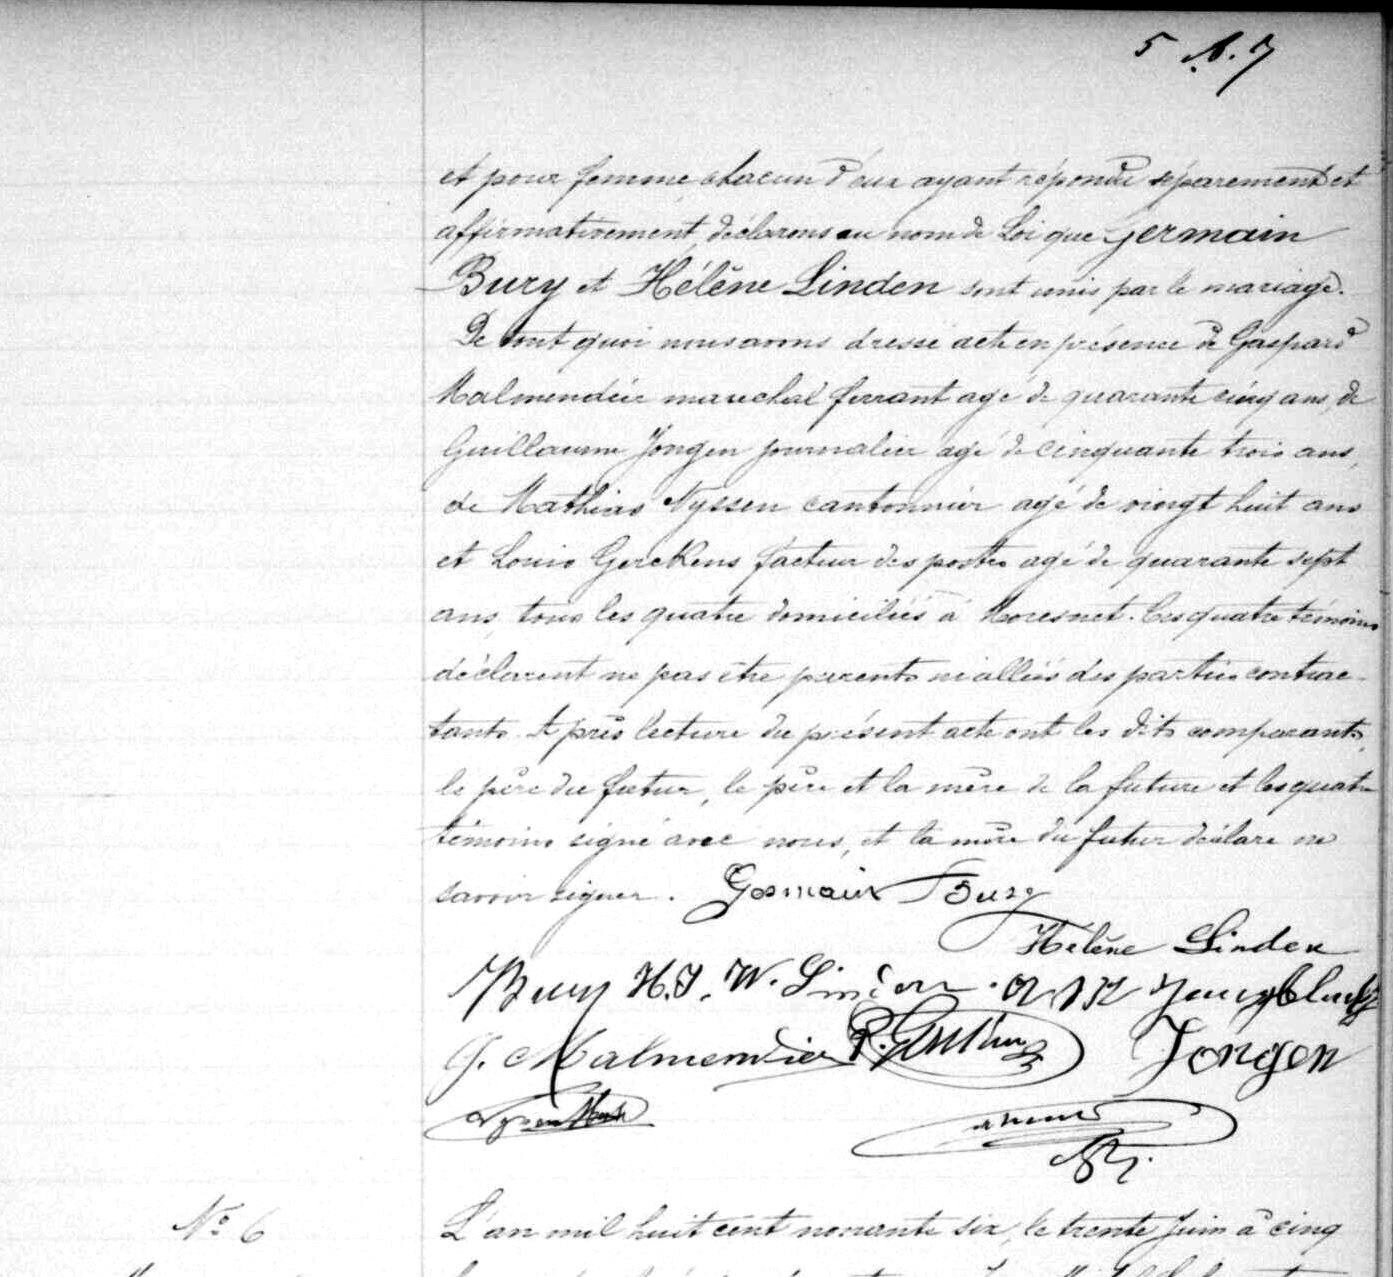 5
et pour femme, chacun d'eux ayant répondu séparement et
affirmativement, déclarons au nom de Loi que Germain
Bury et Hélène Linden sont unis par le mariage.
De tout quoi nous avons dressé acte en présence de Gaspard
Malmendier marechal ferrant agé de quarante cinq ans, de
Guillaume Jongen journalier agé de cinquante trois ans,
de Mathias Nyssen cantonnier agé de vingt huit ans
et Louis Gerckens facteur des postes agé de quarante sept
ans, tous les quatre domiciliés à Moresnet. Les quatre témoins
déclarent ne pas être parents ni alliés des parties contrac-
tants. Après lecture du présent acte ont les dits comparants,
le père du futur, le père et la mère de la future et les quatre
témoins signé avec nous, et la mère du futur déclare ne
savoir signer. Germain Bury
Hélène Linden
Bury H.J. W. Linden
G. Malmendier Jongen
Nyssen
No 6 L'an mil huit cent nonante six, le trente Juin à cinq